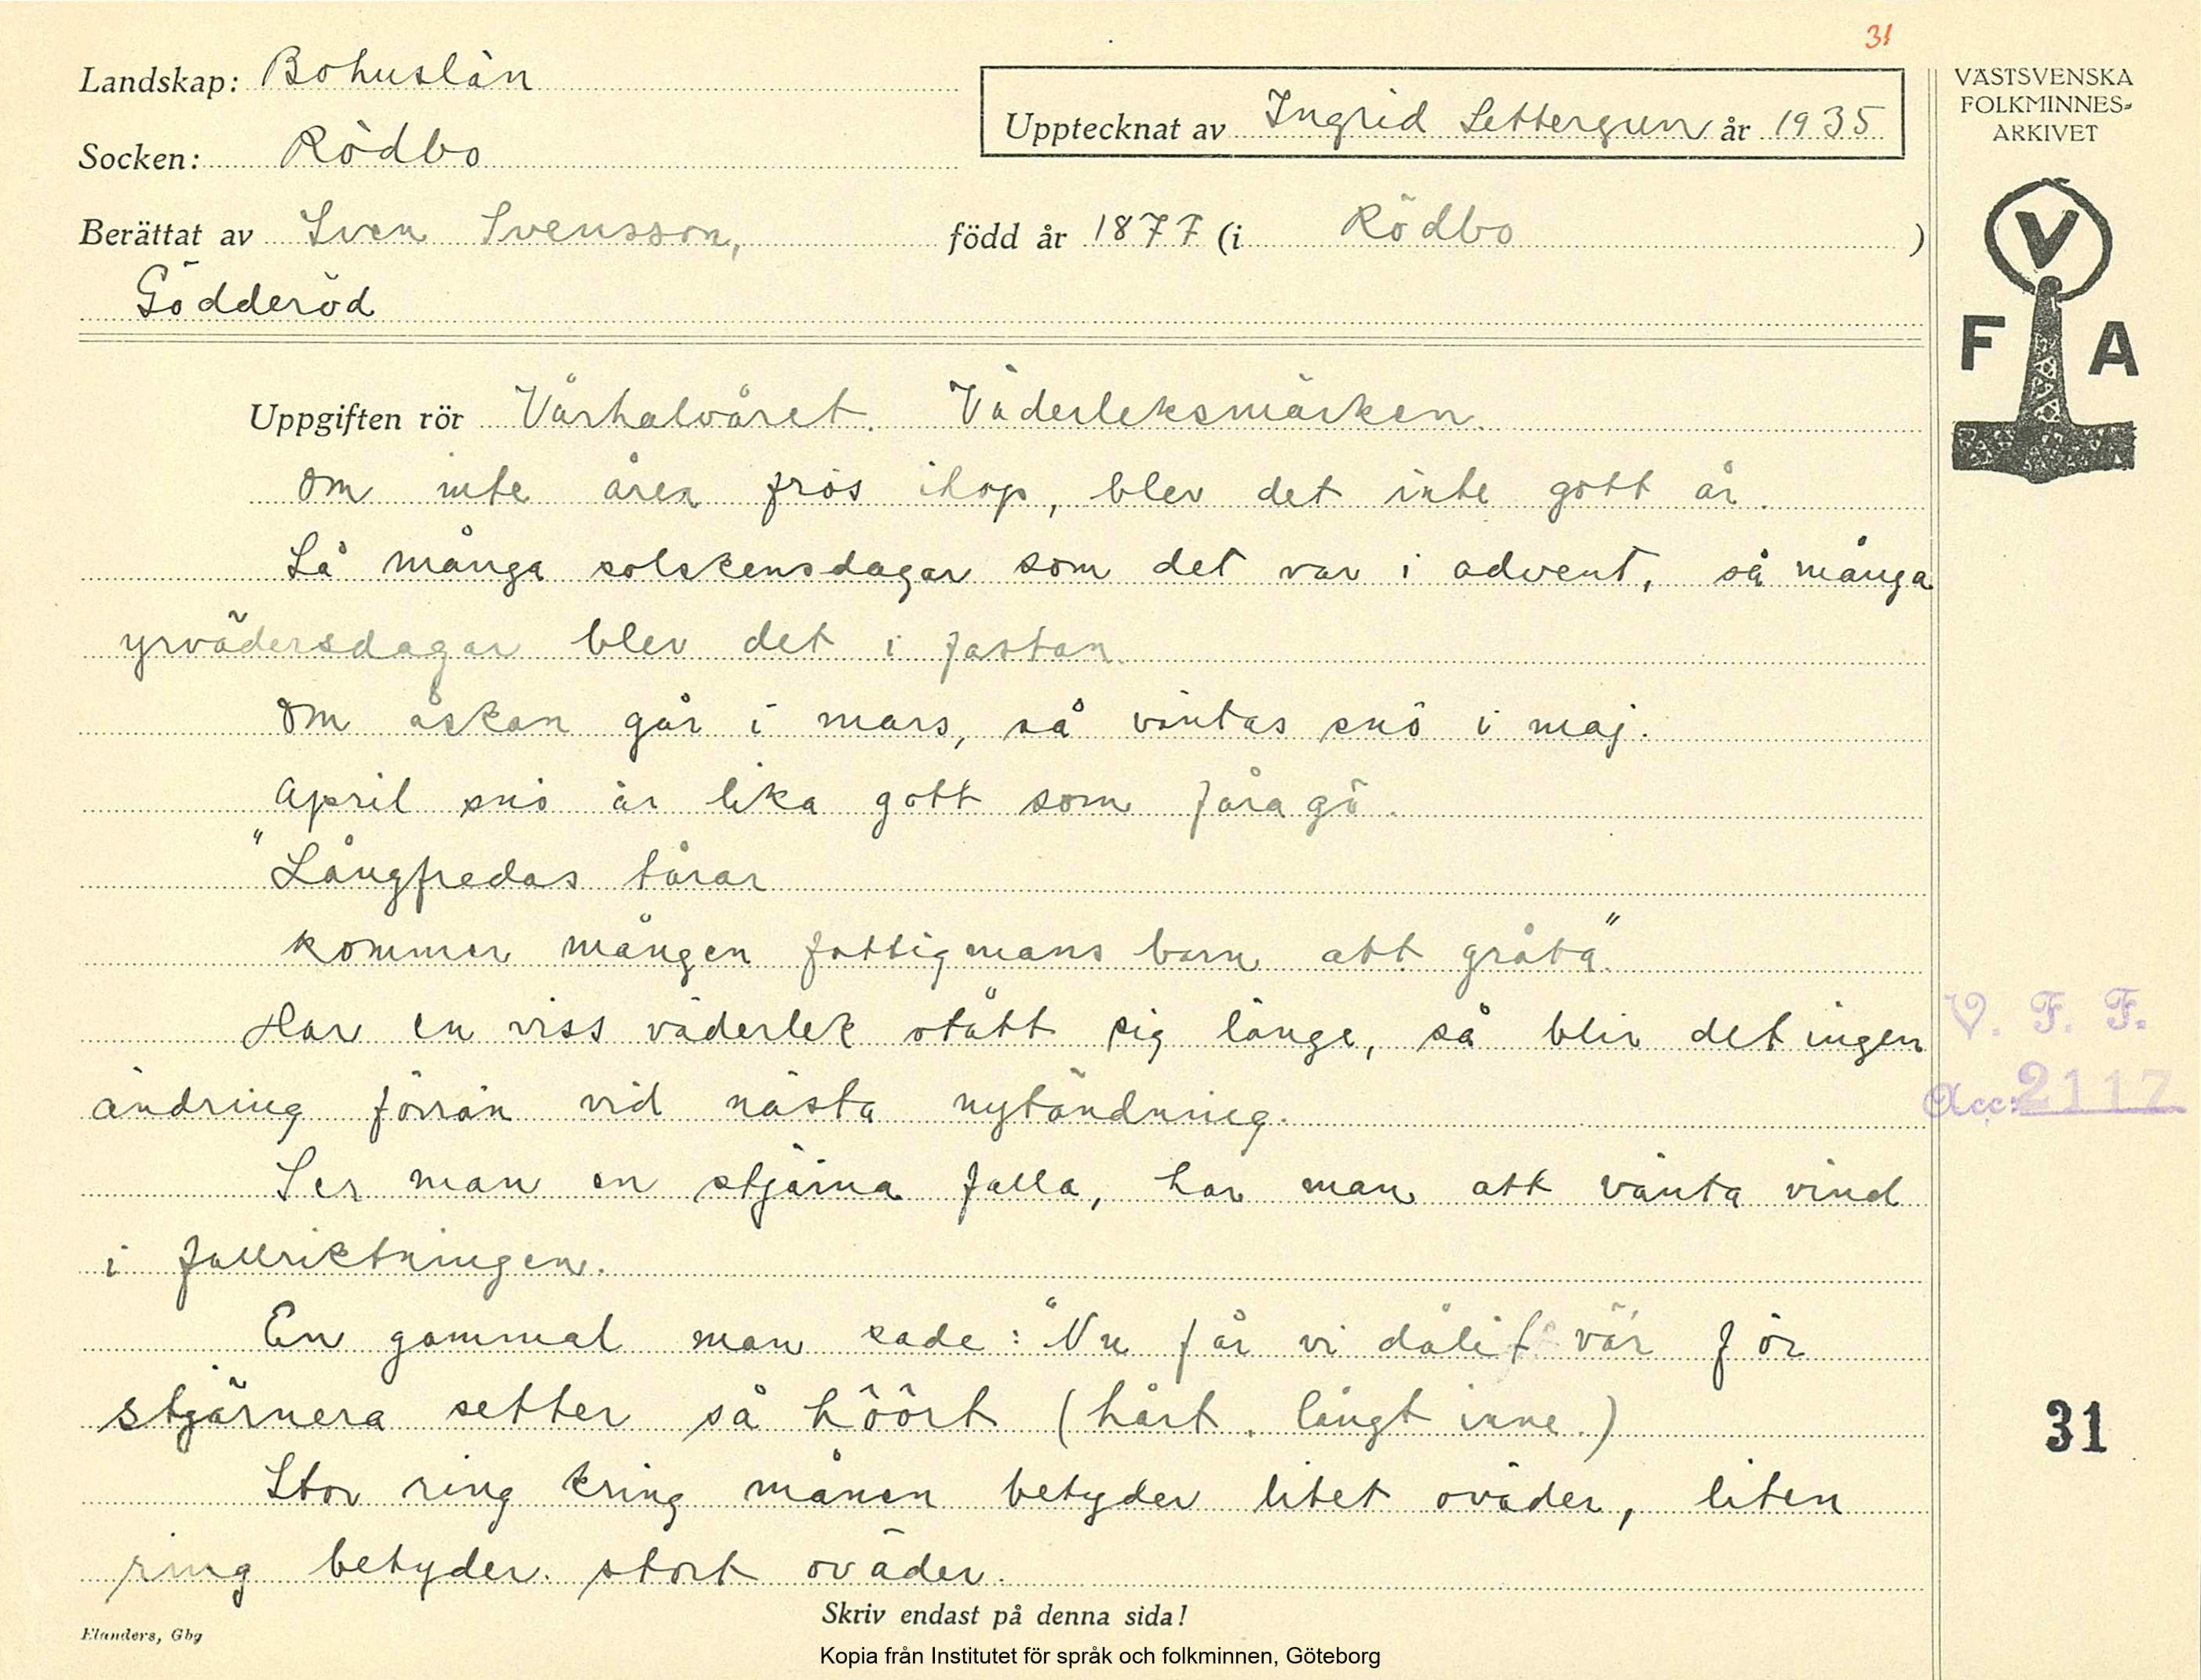 31
Landskap: Bohuslän
Socken: Rödbo
Upptecknat av Ingrid Settergren år 1935
Berättat av Sven Svensson, född år 1877 (i Rödbo )
Gödderöd
VÄSTSVENSKA
FOLKMINNES-
ARKIVET
V
F A
Uppgiften rör Vårhalvåret. Väderleksmärken.
Om inte åren frös ihop, blev det inte gott år.
Så många solskensdagar som det var i advent, så många
yrvädersdagar blev det i fastan.
Om åskan går i mars, så väntas snö i maj.
April snö är lika gott som fåra gö.
"Långfredas tårar
kommer mången fattigmans barn att gråta"
Har en viss väderlek stått sig länge, så blir det ingen
ändring förrän vid nästa nytändning.
Ser man en stjärna falla, har man att vänta vind
i fallriktningen.
En gammal man sade: "Nu får vi dålit vär för
stjärnera setter så höört (hårt, långt inne.)
Stor ring kring månen betyder litet oväder, liten
ring betyder stort oväder.
V. F. F.
Acc: 2117
31
Skriv endast på denna sida!
Elanders, Gbg
Kopia från Institutet för språk och folkminnen, Göteborg